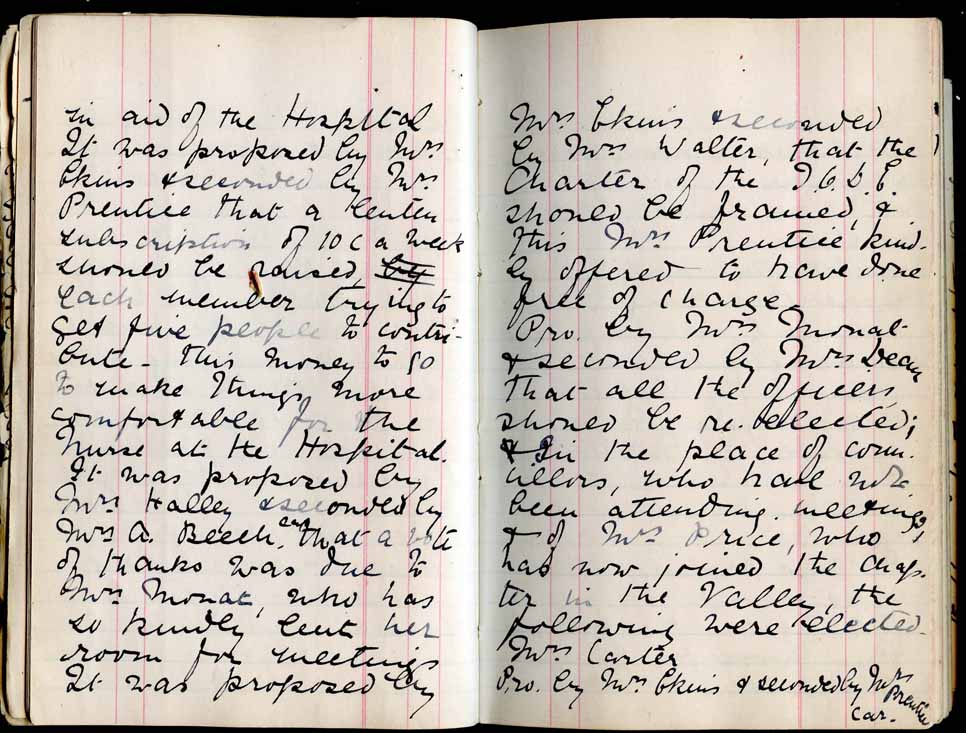 in aid of the Hospital
It was proposed by Mrs
Ekins & seconded by Mrs
Prentice that a Lenten
subscription of 10c a week
should be raised, by
each member trying to
get five people to contri-
bute - This money to go
to make things more
comfortable for the
Nurse at the Hospital.
It was proposed by
Mrs Halley & seconded by
Mrs A. Beech, that a vote
of thanks was due to
Mrs Monat, who has
so kindly lent her
room for meetings
It was proposed by
Mrs Ekins & seconded
by Mrs Walter, that the
Charter of the I.O.D.E.
should be framed, &
this Mrs Prentice kind-
ly offered to have done
free of charge
Pro. by Mrs Monat
& seconded by Mrs Dean
that all the officers
should be re-elected;
& In the place of coun-
cillors, who had not
been attending meetings,
& of Mrs Price, who
has now joined the chap-
ter in the Valley, the
following were elected-
Mrs Carter
Pro. by Mrs Ekins & seconded by Mrs
Prentice
Car.